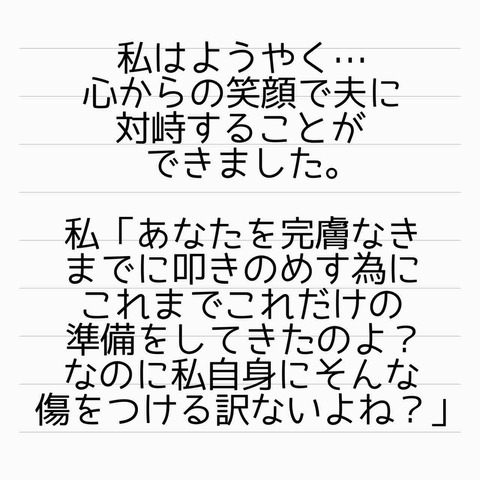 私はようやく…
心からの笑顔で夫に
対峙することが
できました。
私「あなたを完膚なき
までに叩きのめす為に
これまでこれだけの
準備をしてきたのよ？
なのに私自身にそんな
傷をつける訳ないよね？」